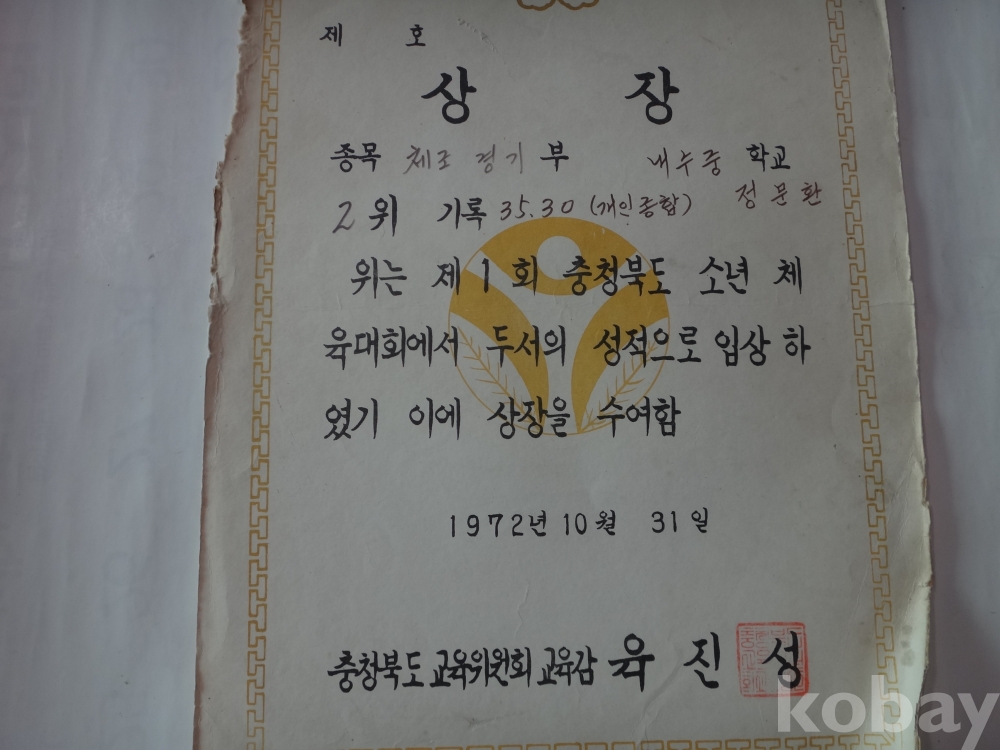 제 호
상 장
종목 체조 경기 부 내수중 학교
2 위 기록 35.30 (개인종합) 정문환
위는 제 1 회 충청북도 소년 체
육대회에서 두서의 성적으로 입상 하
였기 이에 상장을 수여함
1972년 10월 31일
충청북도 교육위원회 교육감 육 진 성
kobay